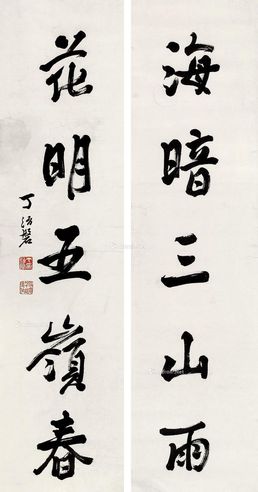 海暗三山雨
花明五嶺春
丁治磐